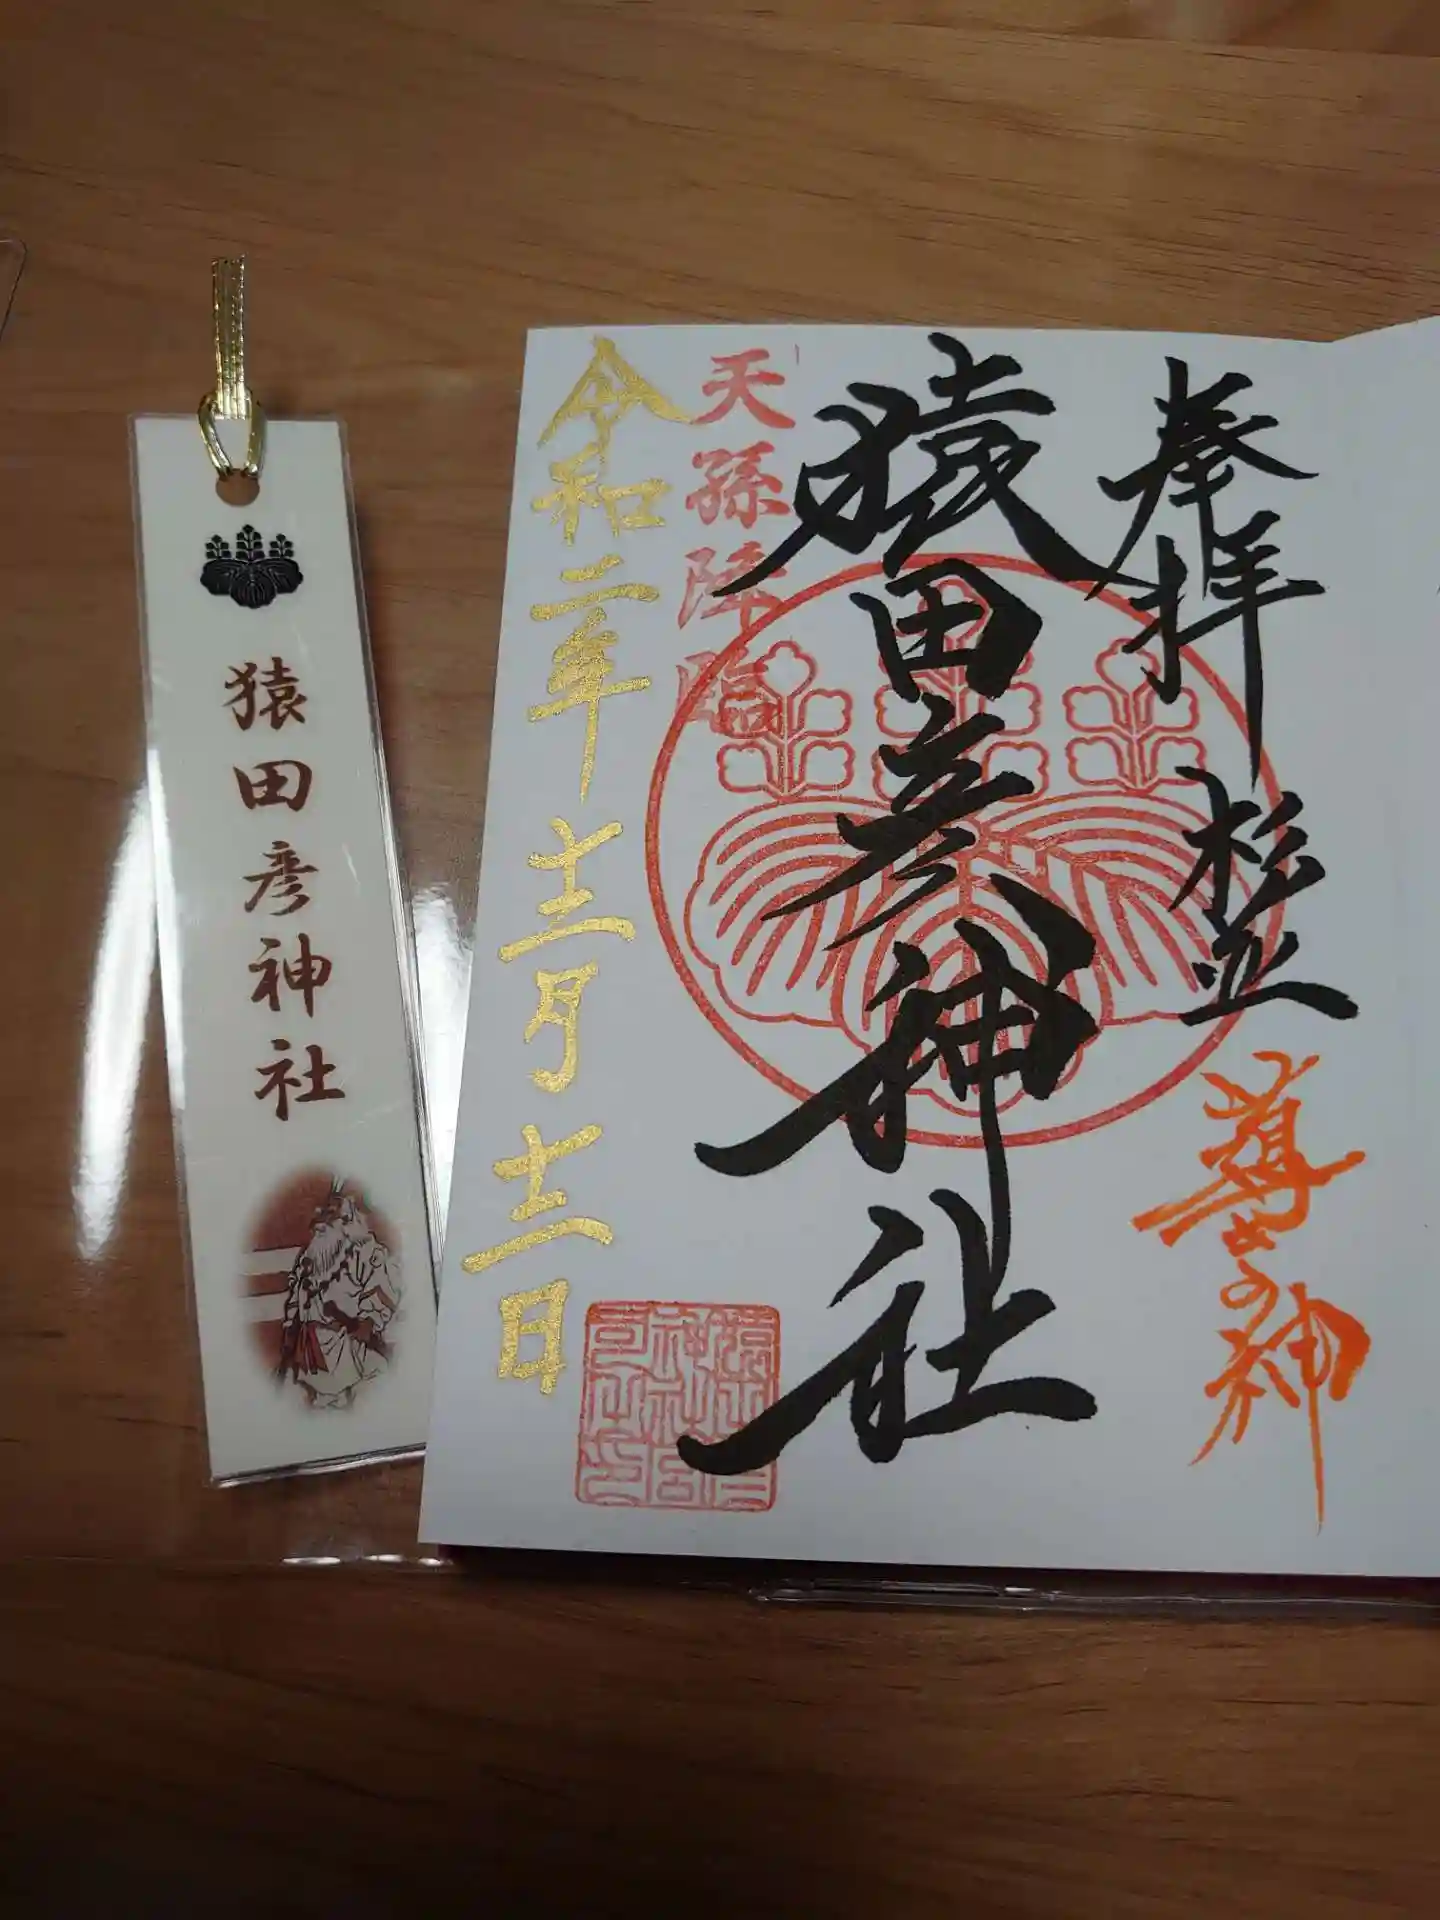 奉拝 杉並
導きの神
猿田彦神社
天孫降臨
令和二年 十二月 十二日
猿田彦神社